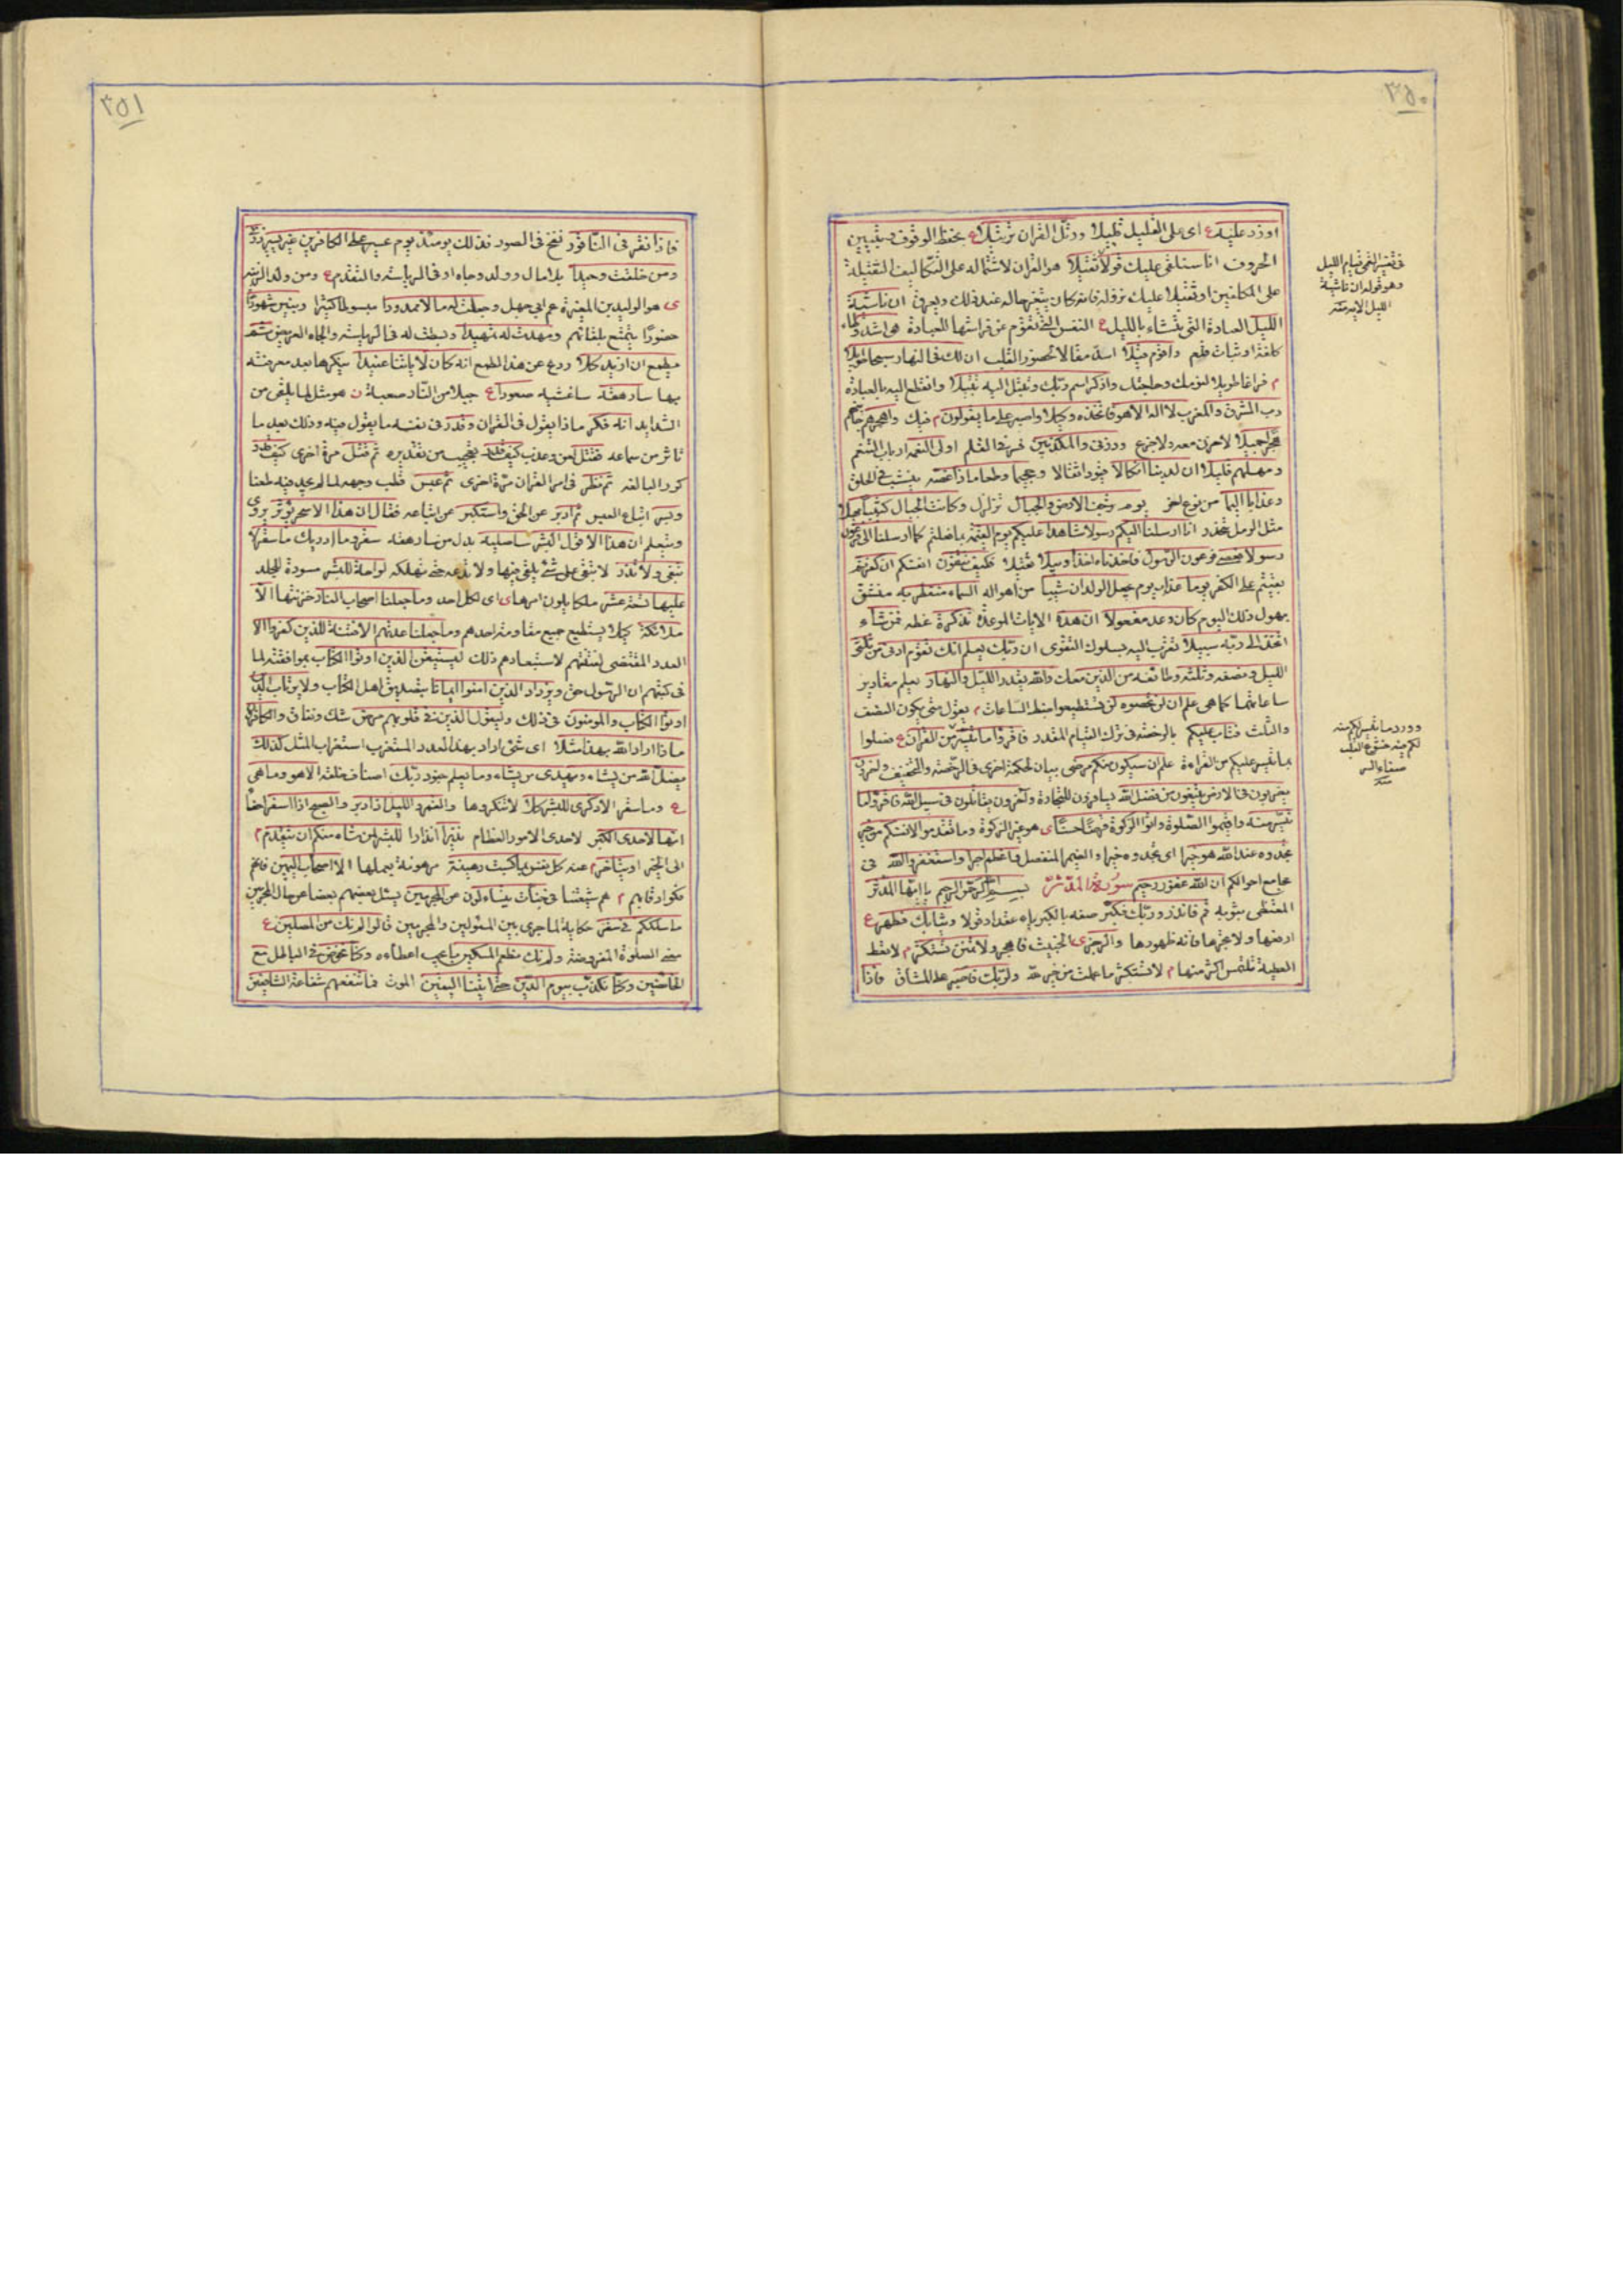 ٣٥٠
او زد عليه ع اى على القليل قليلا ورتل القران ترتيلا ع بحفظ الوقوف وتبيين
الحروف انا سنلقى عليك قولا ثقيلا هو القران لاشتماله على التكاليف الثقيلة
على المكلفين او ثقيلا عليك نزوله فانه كان يتغير حاله عند ذلك ويعرق ان ناشئة
الليل العبادة التى تنشاء بالليل ع النفس التى تقوم عن فراشها للعبادة هى اشد وطاء
كلفة او ثبات قدم واقوم قيلا اسد مقالا لحضور القلب ان لك فى النهار سبحا طويلا
م فراغا طويلا لنومك وحاجتك واذكر اسم ربك وتبتل اليه تبتيلا وانقطع اليه بالعبادة
رب المشرق والمغرب لا اله الا هو فاتخذه وكيلا واصبر على ما يقولون م فيك واهجرهم
هجرا جميلا وذرنى والمكذبين اولى النعمة ارباب التنعم
ومهلهم قليلا ان لدينا انكالا قيودا ثقالا وجحيما وطعاما ذا غصة ينشب فى الحلق
وعذابا اليما من نوع اخر يوم ترجف الارض والجبال تزلزل وكانت الجبال كثيبا مهيلا
مثل الرمل انا ارسلنا اليكم رسولا شاهدا عليكم يوم القيمة بما فعلتم كما ارسلنا الى فرعون
رسولا فعصى فرعون الرسول فاخذناه اخذا وبيلا ثقيلا فكيف تتقون انفسكم ان كفرتم
بقيتم على الكفر يوما عذاب يوم يجعل الولدان شيبا من اهواله السماء منفطر به منشق
بهول ذلك اليوم كان وعده مفعولا ان هذه الايات الموعدة تذكرة عظة فمن شاء
اتخذ الى ربه سبيلا تقرب اليه بسلوك التقوى ان ربك يعلم انك تقوم ادنى من ثلثى
الليل ونصفه وثلثه وطائفة من الذين معك والله يقدر الليل والنهار يعلم مقادير
ساعاتهما كما هى علم ان لن تحصوه لن تستطيعوا ضبط الساعات م يقول متى يكون النصف
والثلث فتاب عليكم بالرخصة فى ترك القيام المقدر فاقرؤا ما تيسر من القران ع صلوا
ما تيسر عليكم من القراءة علم ان سيكون منكم مرضى بيان لحكمة اخرى فى الرخصة والتخفيف واخرون
يضربون فى الارض يبتغون من فضل الله يسافرون للتجارة واخرون يقاتلون فى سبيل الله فاقرؤا ما
تيسر منه واقيموا الصلوة واتوا الزكوة قرضا حسنا ى هو غير الزكوة وما تقدموا لانفسكم من خير
تجدوه عند الله هو خيرا اى تجدوه خيرا والضمير المنفصل واعظم اجرا واستغفروا الله فى
مجامع احوالكم ان الله غفور رحيم سورة المدثر بسم الله الرحمن الرحيم يا ايها المدثر
المتغطى بثوبه قم فانذر وربك فكبر صفه بالكبرياء عقدا وقولا وثيابك فطهر ع
ارفعها ولا تجرها فانه طهورها والرجز ى الخبيث فاهجر ولا تمنن تستكثر م لا تعط
العطية تلتمس اكثر منها م لا تستكثر ما عملت من خير لله ولربك فاصبر على المشاق فاذا
فى تفسير القمى قيام الليل
وهو قوله ان ناشئة
الليل الاية منه
وورد ما تيسر لكم منه
لكم فيه خشوع القلب
صفاء السر
منه
٣٥١
فاذا نقر فى الناقور نفخ فى الصور فذلك يومئذ يوم عسير على الكافرين غير يسير ذرنى
ومن خلقت وحيدا بلا مال وولد وجاه او فى الرياسة والتقدم ع ومن ولد الزنا
ى هو الوليد بن المغيرة عم ابى جهل وجعلت له مالا ممدودا مبسوطا كثيرا وبنين شهودا
حضورا يتمتع بلقائهم ومهدت له تمهيدا وبسطت له فى الرياسة والجاه العريض ثم
يطمع ان ازيد كلا ردع عن هذا الطمع انه كان لاياتنا عنيدا ينكرها بعد معرفته
بها سارهقه ساغشيه صعودا ع جبلا من النار صعبة ن هو مثل لما يلقى من
الشدايد انه فكر ماذا يقول فى القران وقدر فى نفسه ما يقول فيه وذلك بعد ما
تاثر من سماعه فقتل لعن وعذب كيف قدر تعجيب من تقديره ثم قتل مرة اخرى كيف قدر
كرر للمبالغة ثم نظر فى امر القران مرة اخرى ثم عبس قلب وجهه لما لم يجد فيه طعنا
وبسر اتباع العبس ثم ادبر عن الحق واستكبر عن اتباعه فقال ان هذا الا سحر يؤثر يروى
ويتعلم ان هذا الا قول البشر ساصليه بدل من سارهقه سقر وما ادريك ما سقر لا
تبقى ولا تذر لا تبقى على شئ يلقى فيها ولا تدعه حتى تهلكه لواحة للبشر مسودة للجلد
عليها تسعة عشر ملكا يلون امرها ى اى لكل احد وما جعلنا اصحاب النار خزنتها الا
ملائكة كيلا يستطيع جميع مقاومة احدهم وما جعلنا عدتهم الا فتنة للذين كفروا الا
العدد المقتضى لفتنتهم لاستبعادهم ذلك ليستيقن الذين اوتوا الكتاب بموافقته لما
فى كتبهم ان الرسول حق ويزداد الذين امنوا ايمانا بتصديق اهل الكتاب ولا يرتاب الذين
اوتوا الكتاب والمومنون فى ذلك وليقول الذين فى قلوبهم مرض شك ونفاق والكافرون
ماذا اراد الله بهذا مثلا اى شئ اراد بهذا العدد المستغرب استغراب المثل كذلك
يضل الله من يشاء ويهدى من يشاء وما يعلم جنود ربك اصناف خلقه الا هو وما هى
ع وما سقر الا ذكرى للبشر كلا لا تنكروها والقمر والليل اذ ادبر والصبح اذا اسفر اضاء
انها لاحدى الكبر لاحدى الامور العظام نذيرا انذارا للبشر لمن شاء منكم ان يتقدم م
الى الخير او يتاخر م عنه كل نفس بما كسبت رهينة مرهونة بعملها الا اصحاب اليمين فانهم
فكوا رقابهم م هم شيعتنا فى جنات يتساءلون عن المجرمين يسئل بعضهم بعضا عن حال المجرمين
ما سلككم فى سقر حكاية لما جرى بين المسئولين والمجرمين قالوا لم نك من المصلين ع
يعنى الصلوة المفروضة ولم نك نطعم المسكين ما يجب اعطاءه وكنا نخوض فى الباطل مع
الخائضين وكنا نكذب بيوم الدين حتى اتينا اليقين الموت فما تنفعهم شفاعة الشافعين